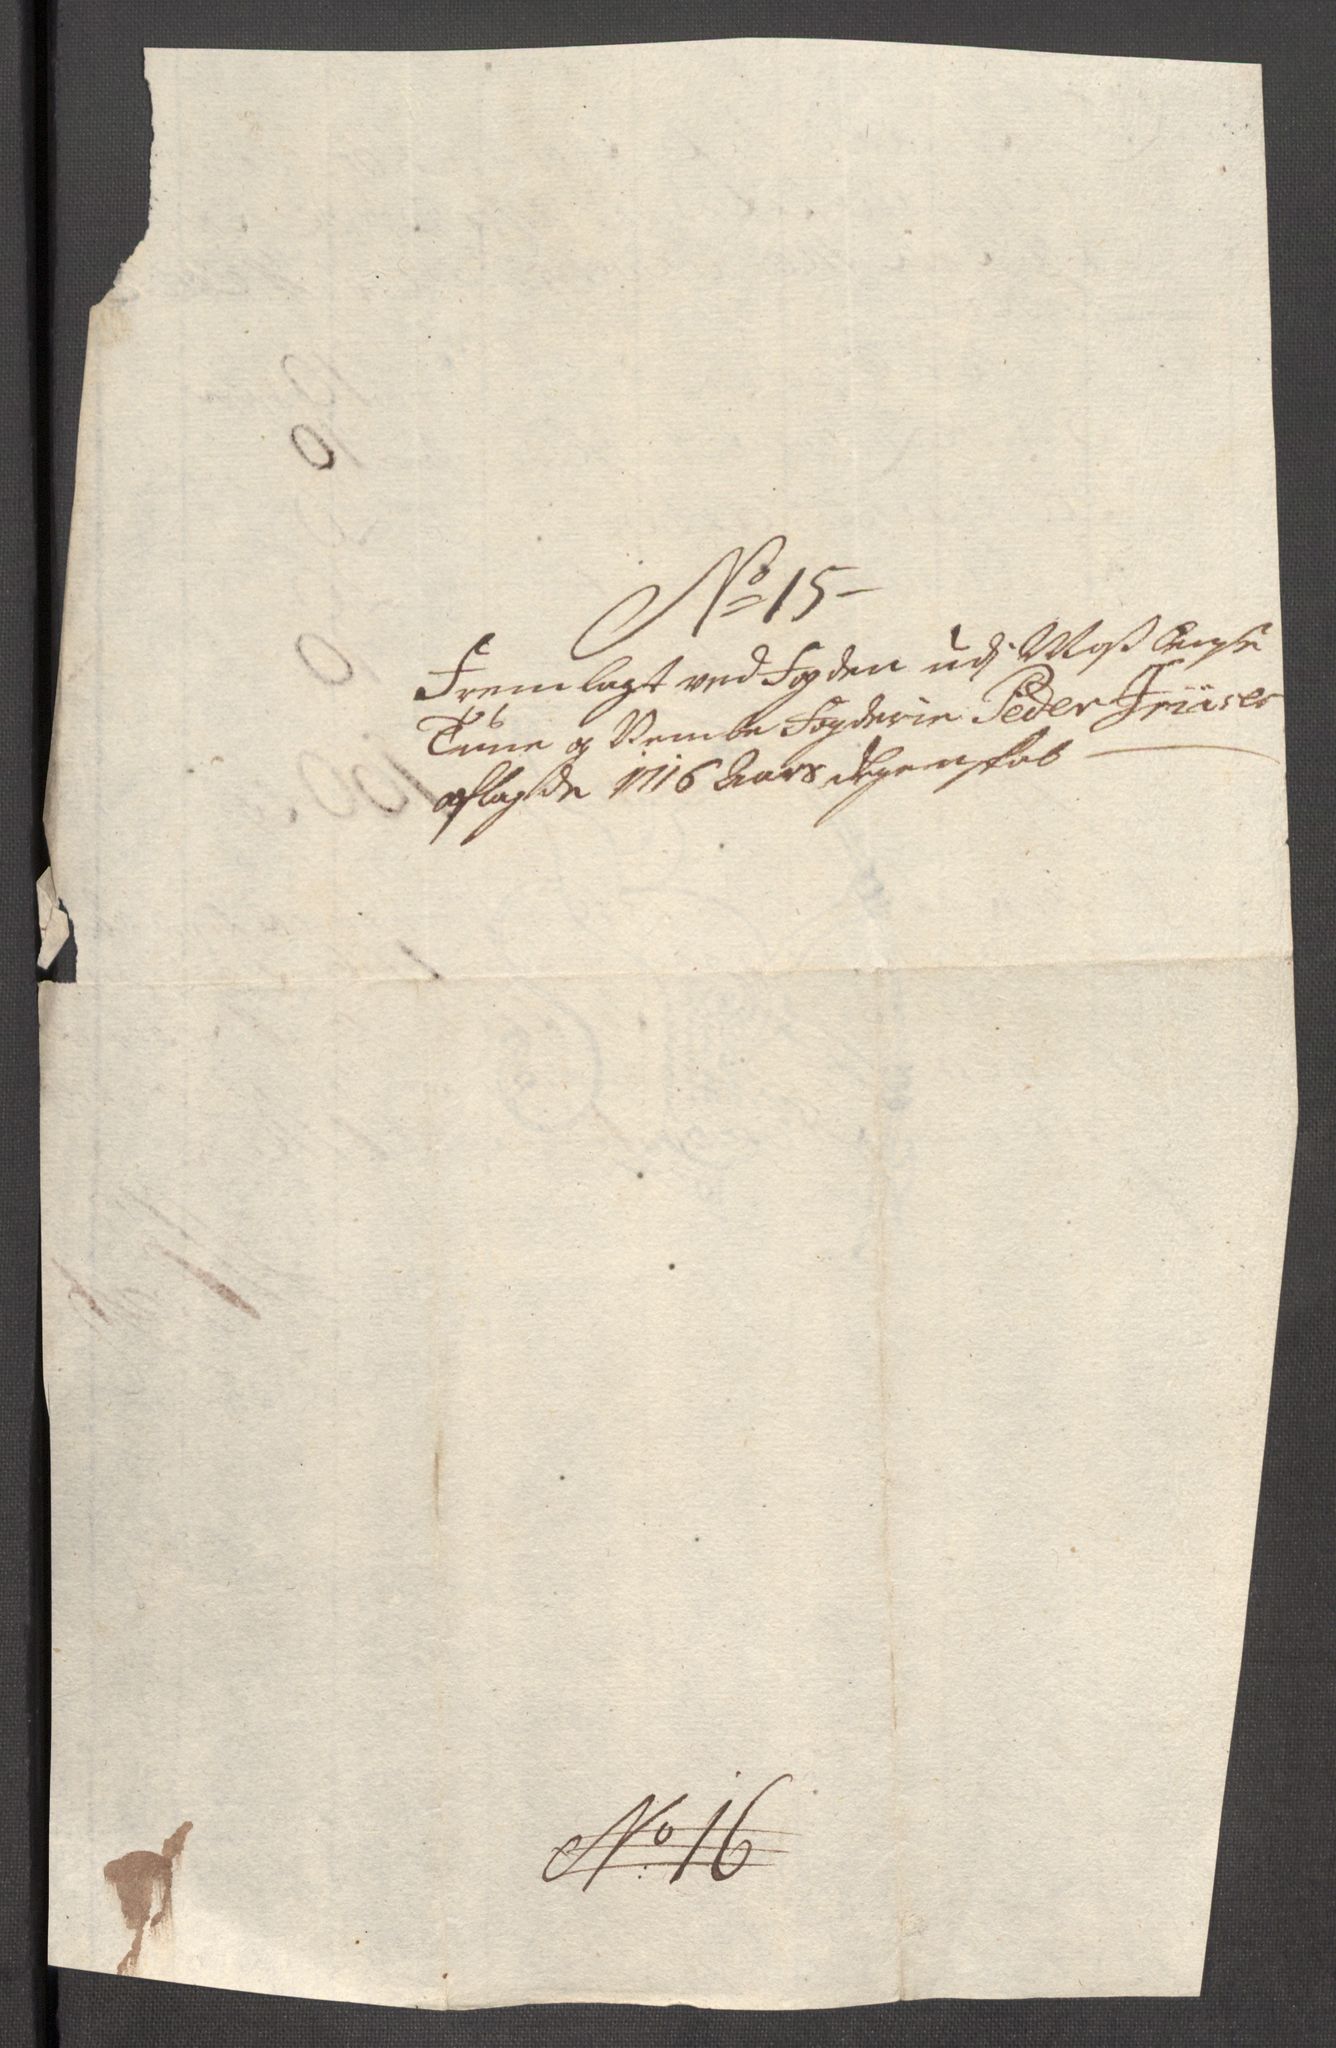 No 15
Fremlagt ved Fogden udj Moss
Tune og Vembe Fogderie Peder
aflagde 1716 Aars Regenskab
No 16